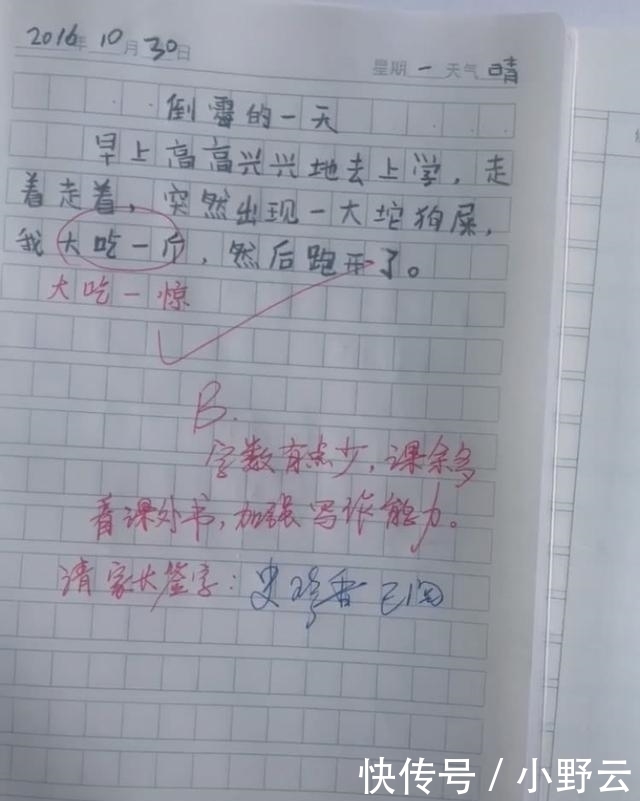 2016年10月30日 星期一 天气晴
倒霉的一天
早上高高兴兴地去上学，走
着走着，突然出现一大坨狗屎，
我大吃一斤，然后跑开了。
大吃一惊
B.
字数有点少，课余多
看课外书，加强写作能力。
请家长签字：史珍香 已阅
快传号 / 小野云